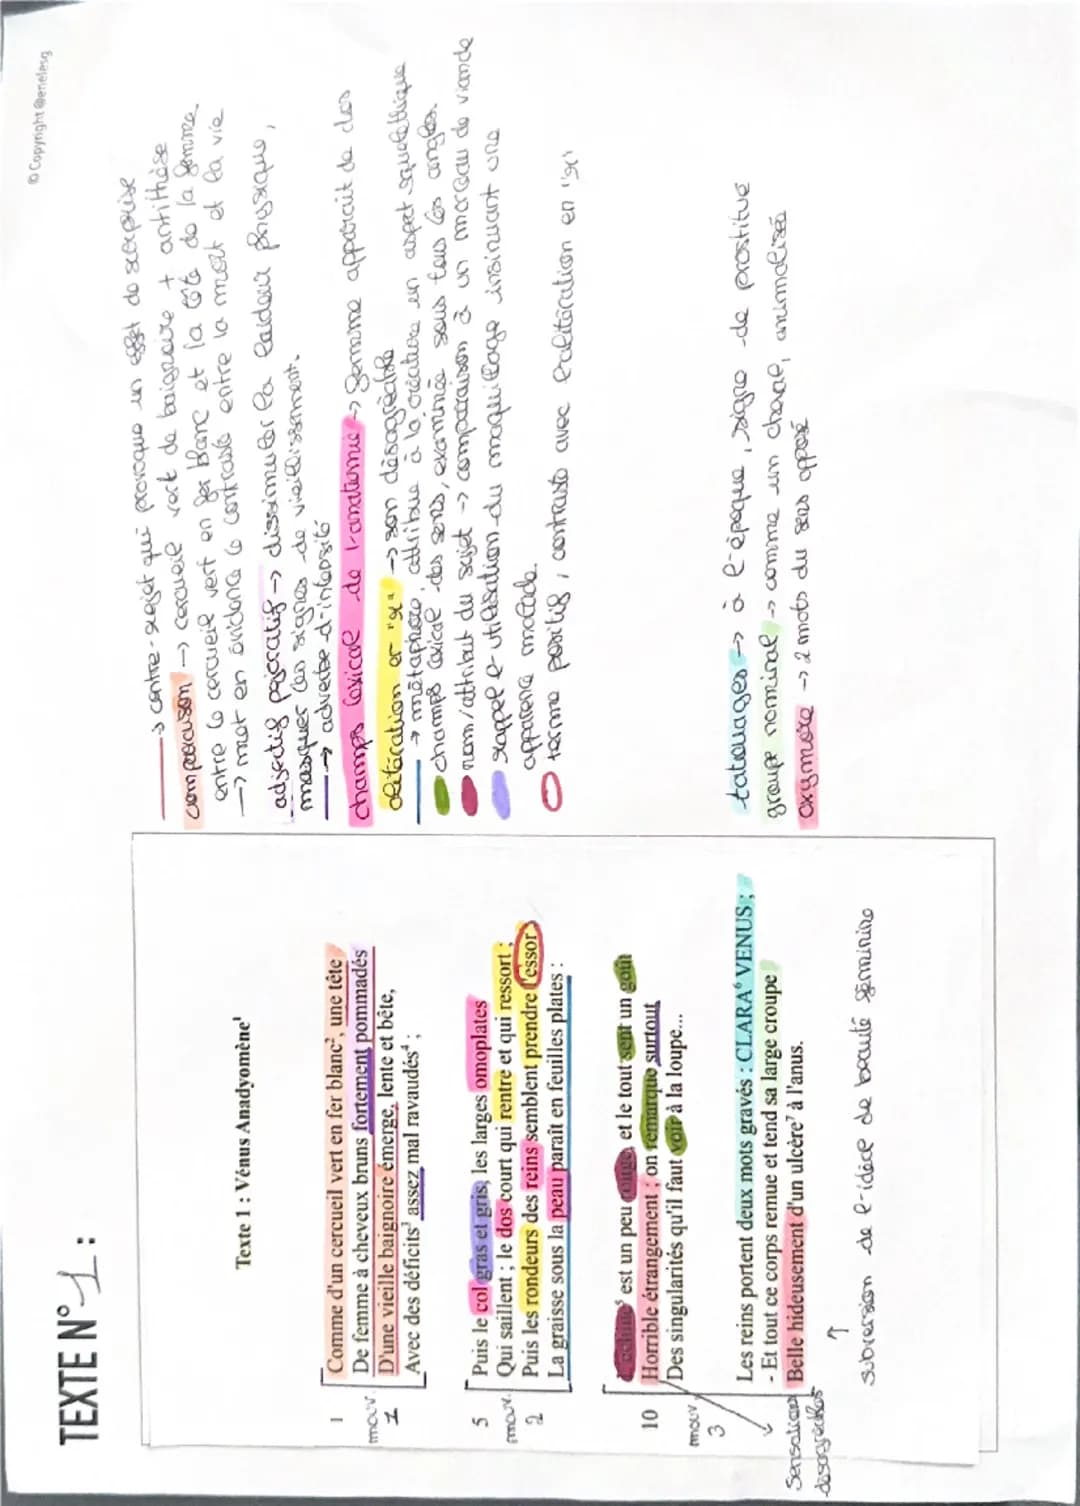 © Copyright @enelesg
TEXTE N° 1 :
Texte 1 : Vénus Anadyomène¹
1
mouv. 1
Comme d'un cercueil vert en fer blanc², une tête
De femme à cheveux bruns fortement pommadés
D'une vieille baignoire émerge, lente et bête,
Avec des déficits³ assez mal ravaudés⁴ ;
5
mouv. 2
Puis le col gras et gris, les larges omoplates
Qui saillent ; le dos court qui rentre et qui ressort ;
Puis les rondeurs des reins semblent prendre l'essor
La graisse sous la peau paraît en feuilles plates :
10
mouv 3
L'échine⁵ est un peu rouge, et le tout sent un goût
Horrible étrangement ; on remarque surtout
Des singularités qu'il faut voir à la loupe...
Les reins portent deux mots gravés : CLARA⁶ VENUS ;
- Et tout ce corps remue et tend sa large croupe
Belle hideusement d'un ulcère⁷ à l'anus.
Sensations
désagréables
↑
subversion de l'idéal de beauté féminine
→ contre-rejet qui provoque un effet de surprise
comparaison → cercueil vert de baignoire + antithèse
entre le cercueil vert en fer blanc et la tête de la femme
→ met en évidence le contraste entre la mort et la vie
adjectif péjoratif → dissimuler la laideur physique,
masquer les signes de vieillissement.
→ adverbe d'intensité
champs lexical de l'anatomie → femme apparait de dos
alitération er "r" → son désagréable
→ métaphore, attribue à la créature un aspect squelettique
champs lexical des sens, examinée sous tous les angles.
nom/attribut du sujet → comparaison à un morceau de viande
rappel l'utilisation du maquillage insinuant une
apparence malade.
terme positif, contraste avec l'alitération en "r"
tatouages → à l'époque, signe de prostitué
groupe nominal → comme un cheval, animalisé
oxymore → 2 mots du sens opposé